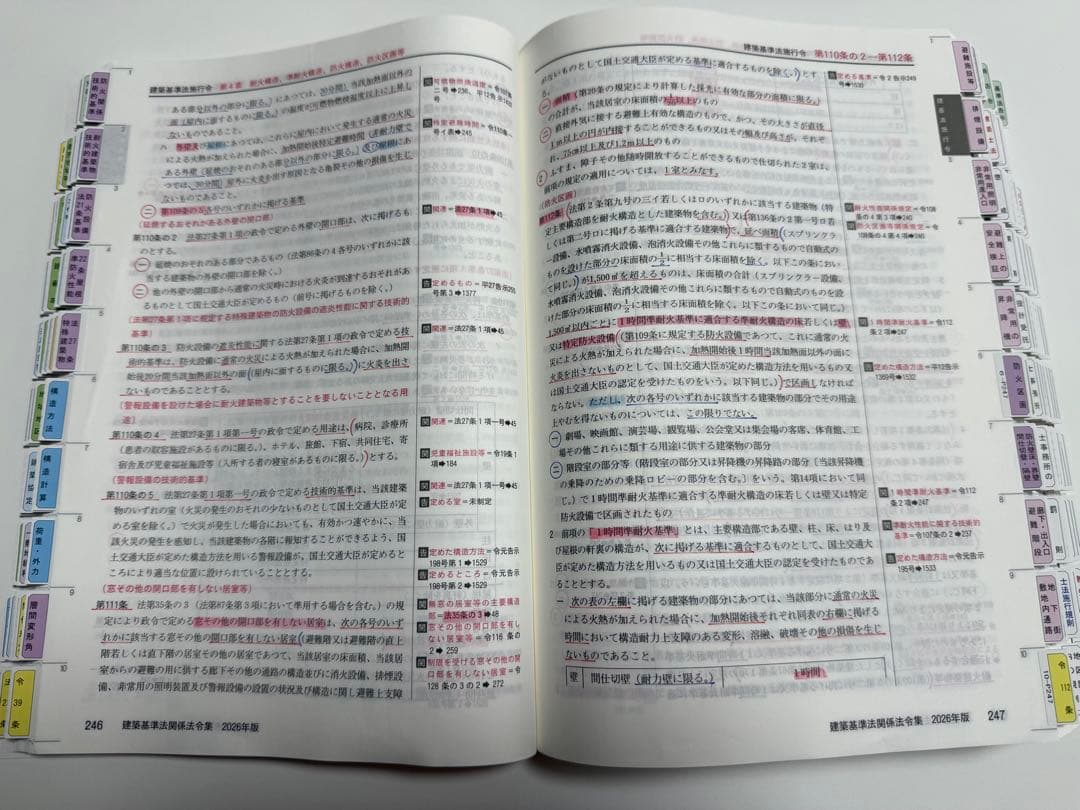 建築基準法施行令 第4章 耐火構造、準耐火構造、防火構造、防火区画等
ある部分以外の部分に限る。)にあつては、20分間)当該加熱面以外の
面(屋内に面するものに限る。)の温度が可燃物燃焼温度以上に上昇し
ないものであること。
ハ 外壁及び屋根にあつては、これらに屋内において発生する通常の火災
による火熱が加えられた場合に、加熱開始後特定避難時間(非耐力壁で
ある外壁(延焼のおそれのある部分以外の部分に限る。)及び屋根にあ
つては、30分間)屋外に火炎を出す原因となる亀裂その他の損傷を生じ
ないものであること。
二 第109条の5各号のいずれかに掲げる基準
(延焼するおそれがある外壁の開口部)
第110条の2 法第27条第1項の政令で定める外壁の開口部は、次に掲げるも
のとする。
一 延焼のおそれのある部分であるもの(法第86条の4各号のいずれかに該
当する建築物の外壁の開口部を除く。)
二 他の外壁の開口部から通常の火災時における火炎が到達するおそれがあ
るものとして国土交通大臣が定めるもの(前号に掲げるものを除く。)
(法第27条第1項に規定する特殊建築物の防火設備の遮炎性能に関する技術的
基準)
第110条の3 防火設備の遮炎性能に関する法第27条第1項の政令で定める技
術的基準は、防火設備に通常の火災による火熱が加えられた場合に、加熱開
始後20分間当該加熱面以外の面(屋内に面するものに限る。)に火炎を出さ
ないものであることとする。
(警報設備を設けた場合に耐火建築物等とすることを要しないこととなる用
途)
第110条の4 法第27条第1項第一号の政令で定める用途は、病院、診療所
(患者の収容施設があるものに限る。)、ホテル、旅館、下宿、共同住宅、寄
宿舎及び児童福祉施設等(入所する者の寝室があるものに限る。)とする。
(警報設備の技術的基準)
第110条の5 法第27条第1項第一号の政令で定める技術的基準は、当該建築
物のいずれの室(火災の発生のおそれの少ないものとして国土交通大臣が定
める室を除く。)で火災が発生した場合においても、有効かつ速やかに、当
該火災の発生を感知し、当該建築物の各階に報知することができるよう、国
土交通大臣が定めた構造方法を用いる警報設備が、国土交通大臣が定めると
ころにより適当な位置に設けられていることとする。
(窓その他の開口部を有しない居室等)
第111条 法第35条の3(法第87条第3項において準用する場合を含む。)の規
定により政令で定める窓その他の開口部を有しない居室は、次の各号のいず
れかに該当する窓その他の開口部を有しない居室(避難階又は避難階の直上
階若しくは直下階の居室その他の居室であつて、当該居室の床面積、当該居
室からの避難の用に供する廊下その他の通路の構造並びに消火設備、排煙設
備、非常用の照明装置及び警報設備の設置の状況及び構造に関し避難上支障
関 可燃物燃焼温度=令107条
二号➡236
関 特定避難時間=令110条一
号イ表➡245
関 関連=法27条1項➡45
告 定めるもの=平27告示255
号第3➡1377
関 関連=法27条1項➡45
関 関連=法27条1項一号➡45
関 児童福祉施設等=令19条1
項➡184
関 関連=法27条1項一号➡45
告 定める室=未制定
告 定めた構造方法=令元告示
198号第1➡1529
告 定めるところ=令元告示
198号第2➡1529
関 無窓の居室等の主要構造
部=法35条の3➡48
関 窓その他の開口部を有し
ない居室等=令116条の
2➡259
関 制限を受ける窓その他の開
口部を有しない居室=令
128条の3の2➡272
246 建築基準法関係法令集 2026年版
建築基準法施行令 第110条の2―第112条
がないものとして国土交通大臣が定める基準に適合するものを除く。)とす
る。
一 面積(第20条の規定により計算した採光に有効な部分の面積に限る。)
の合計が、当該居室の床面積の1/20以上のもの
二 直接外気に接する避難上有効な構造のもので、かつ、その大きさが直径
1m以上の円が内接することができるもの又はその幅及び高さが、それぞ
れ、75cm以上及び1.2m以上のもの
2 ふすま、障子その他随時開放することができるもので仕切られた2室は、
前項の規定の適用については、1室とみなす。
(防火区画)
第112条 法第2条第九号の三イ若しくはロのいずれかに該当する建築物(特
定主要構造部を耐火構造とした建築物を含む。)又は第136条の2第一号ロ若
しくは第二号ロに掲げる基準に適合する建築物で、延べ面積(スプリンクラ
ー設備、水噴霧消火設備、泡消火設備その他これらに類するもので自動式の
ものを設けた部分の床面積の1/2に相当する床面積を除く。以下この条におい
て同じ。)が1,500㎡を超えるものは、床面積の合計(スプリンクラー設備、
水噴霧消火設備、泡消火設備その他これらに類するもので自動式のものを設
けた部分の床面積の1/2に相当する床面積を除く。以下この条において同じ。)
1,500㎡以内ごとに1時間準耐火基準に適合する準耐火構造の床若しくは壁
又は特定防火設備(第109条に規定する防火設備であつて、これに通常の火
災による火熱が加えられた場合に、加熱開始後1時間当該加熱面以外の面に
火炎を出さないものとして、国土交通大臣が定めた構造方法を用いるもの又
は国土交通大臣の認定を受けたものをいう。以下同じ。)で区画しなければ
ならない。ただし、次の各号のいずれかに該当する建築物の部分でその用途
上やむを得ないものについては、この限りでない。
一 劇場、映画館、演芸場、観覧場、公会堂又は集会場の客席、体育館、工
場その他これらに類する用途に供する建築物の部分
二 階段室の部分等(階段室の部分又は昇降機の昇降路の部分(当該昇降機
の乗降のための乗降ロビーの部分を含む。)をいう。第14項において同
じ。)で1時間準耐火基準に適合する準耐火構造の床若しくは壁又は特定
防火設備で区画されたもの
2 前項の「1時間準耐火基準」とは、主要構造部である壁、柱、床、はり及
び屋根の軒裏の構造が、次に掲げる基準に適合するものとして、国土交通大
臣が定めた構造方法を用いるもの又は国土交通大臣の認定を受けたものであ
ることとする。
一 次の表の左欄に掲げる建築物の部分にあつては、当該部分に通常の火災
による火熱が加えられた場合に、加熱開始後それぞれ同表の右欄に掲げる
時間において構造耐力上支障のある変形、溶融、破壊その他の損傷を生じ
ないものであること。
壁 間仕切壁(耐力壁に限る。) 1時間
告 定める基準=令2告示249
号➡1530
関 耐火性能検証=令108
条の4第3項➡240
関 防火区画等関係規定=令
108条の4第4項➡240
関 1時間準耐火基準=令112
条2項➡247
告 定めた構造方法=平12告示
1369号➡1532
関 1時間準耐火基準=令112
条2項➡247
関 準耐火性能に関する技術的
基準=令107条の2➡237
告 定めた構造方法=令元告示
195号➡1533
建築基準法関係法令集 2026年版 247
防火関係技術的基準
耐火建築物技術的基準
防火設備
法21条基準
22条屋根
準防火性能
法27条
特殊建築物
構造方法
構造計算
建築協定
荷重・外力
層間変形角
令39条
避難施設等
建築基準法施行令
排煙設備
非常用照明
非常用進入口
避難上の安全検証
非常用の昇降機
防火区画
防火壁・床・界壁
間仕切壁・隔壁
廊下・出入口
避難階段
敷地内通路
令112条
10-P247
士事務所の
罰則
士法施行規則